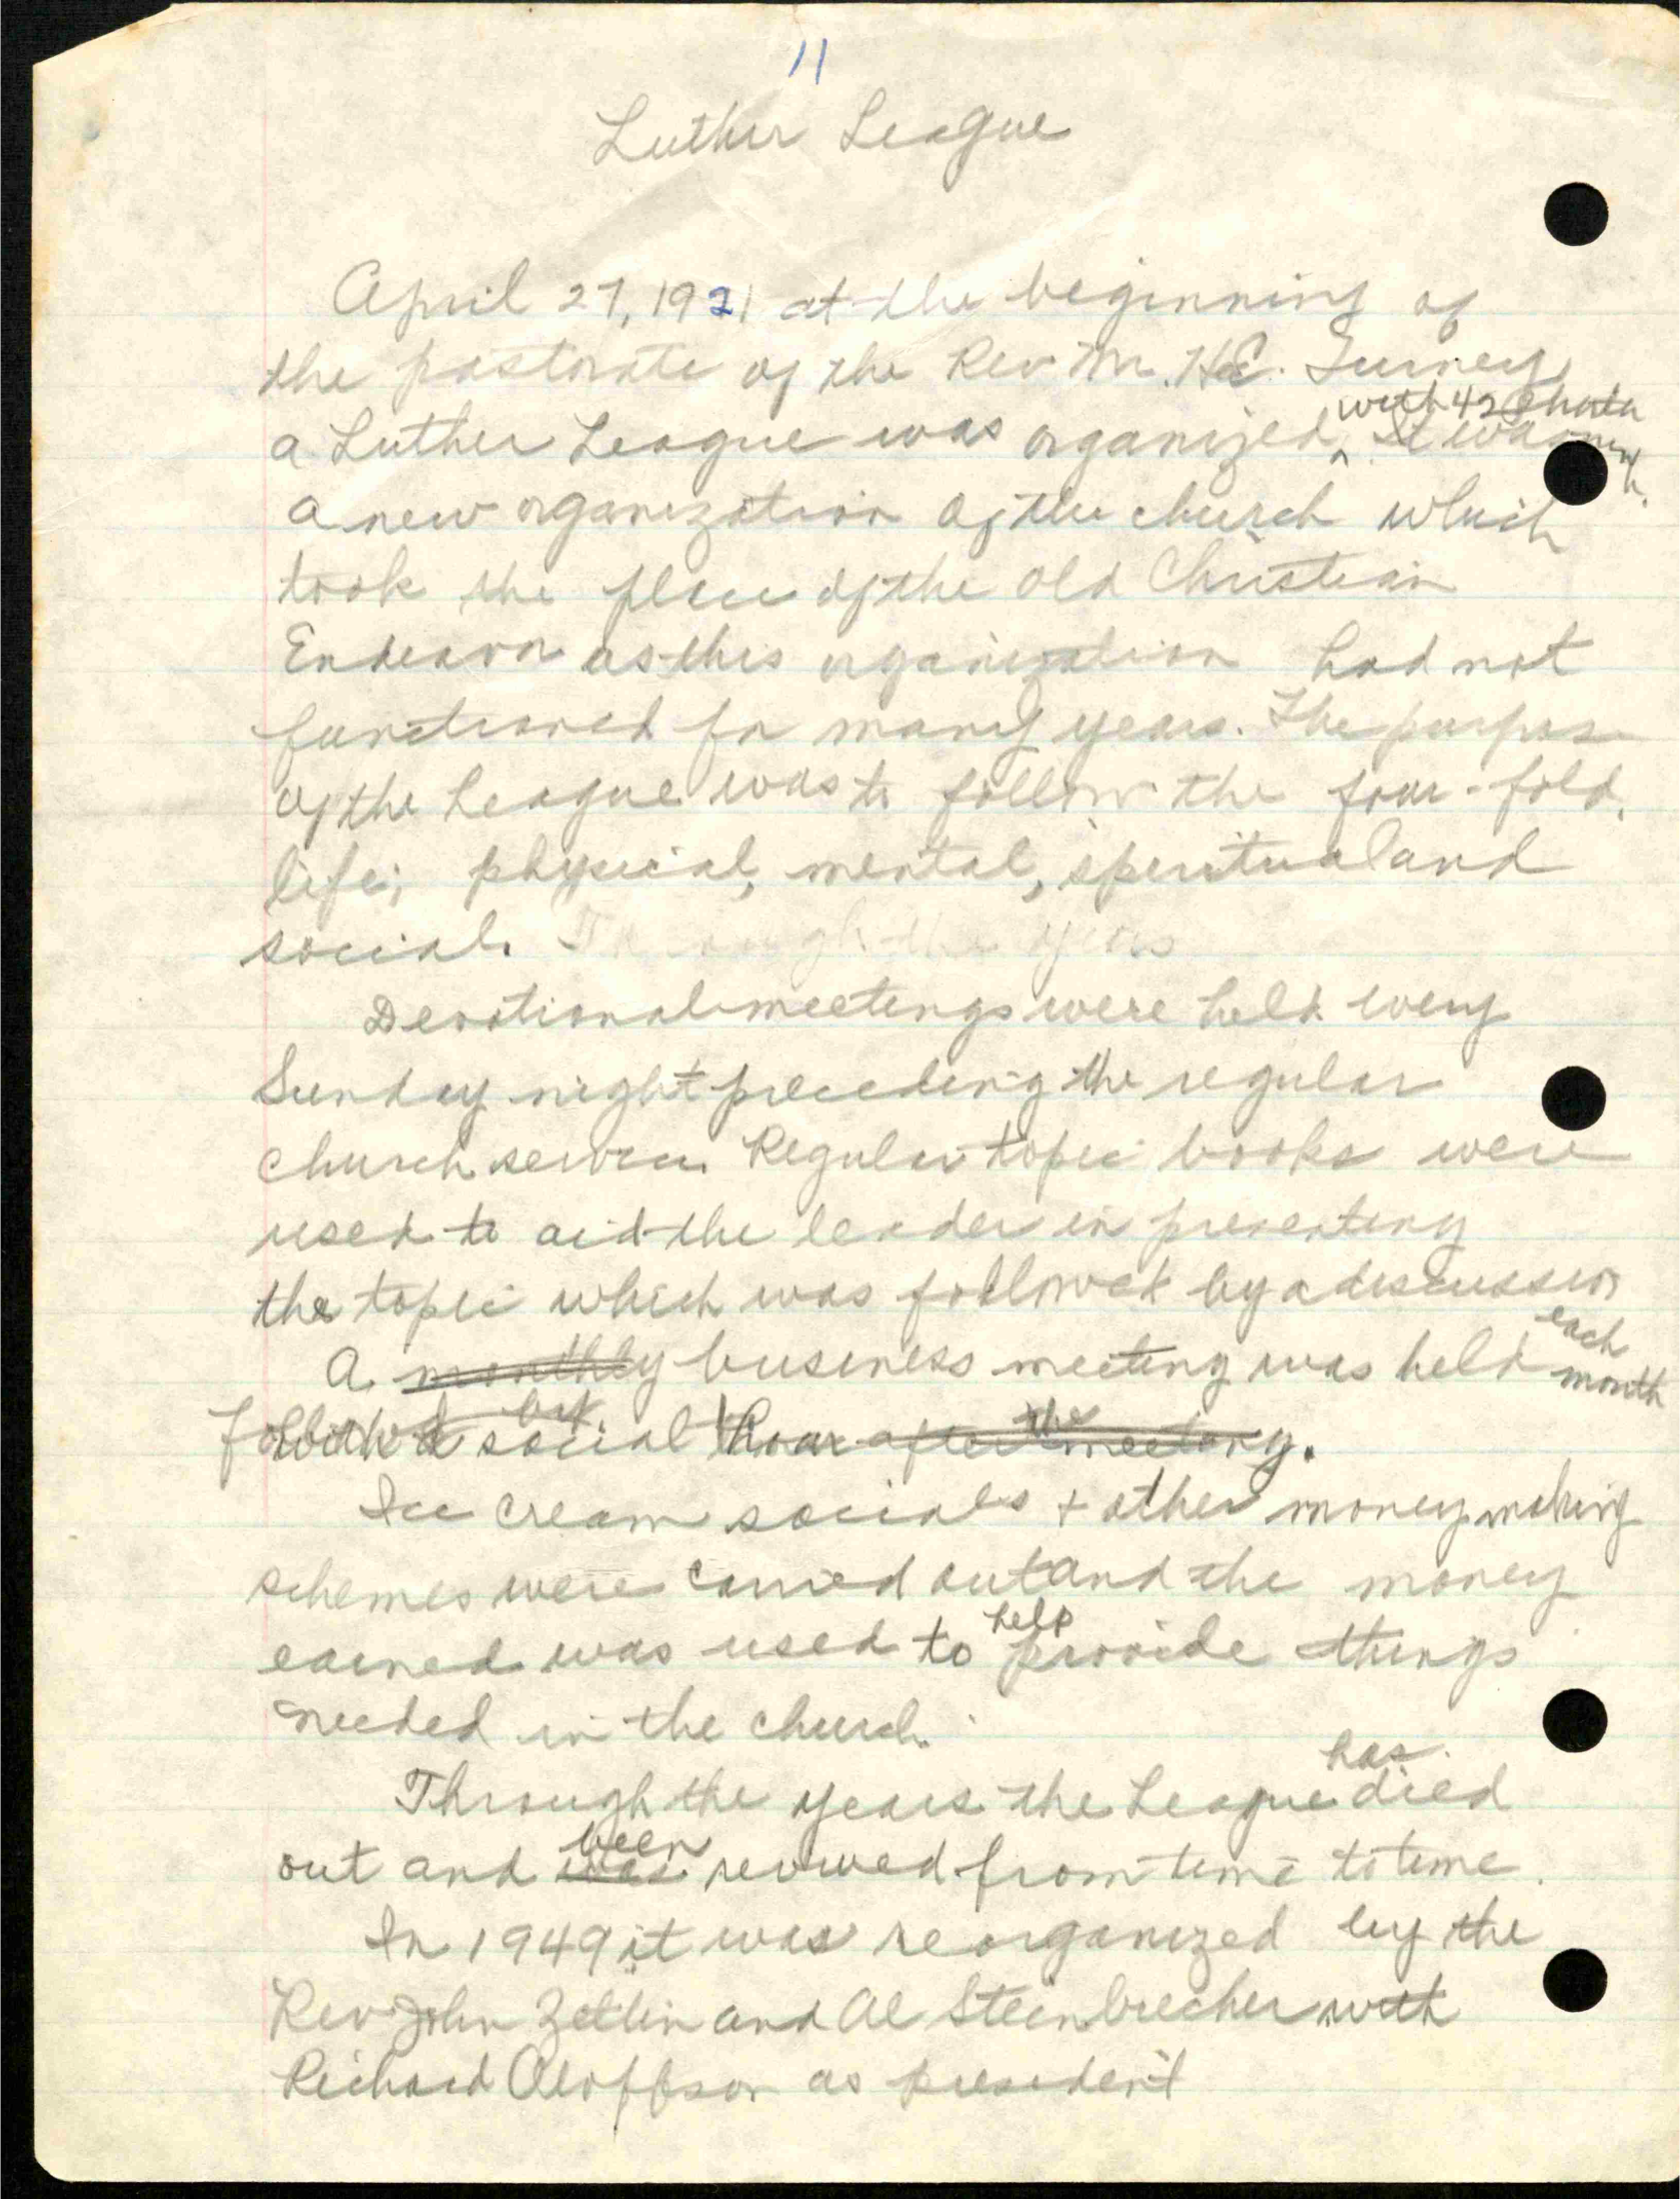 11
Luther League
April 27, 1921 at the beginning of
the pastorate of the Rev Mr. H.E. Turney
with 42 Charter
a Luther League was organized, It was mem.
a new organization of the church which
took the place of the old Christian
Endeavor as this organization had not
functioned for many years. The purpose
of the League was to follow the four-fold
life; physical, mental, spiritual and
social. Through the years
Devotional meetings were held every
Sunday night preceding the regular
church service. Regular topic books were
used to aid the leader in presenting
the topic which was followed by a discussion
each
A monthly business meeting was held month
followed by social hour after the meeting.
Ice cream socials + other money making
schemes were carried out and the money
help
earned was used to provide things
needed in the church.
has
Through the years the League died
been
out and was revived from time to time.
In 1949 it was reorganized by the
Rev John Zetlin and Al Steinbrecher with
Richard Oloffson as president